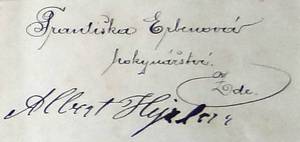 Františka Erbenová
hokynářství
Zde.
Albert